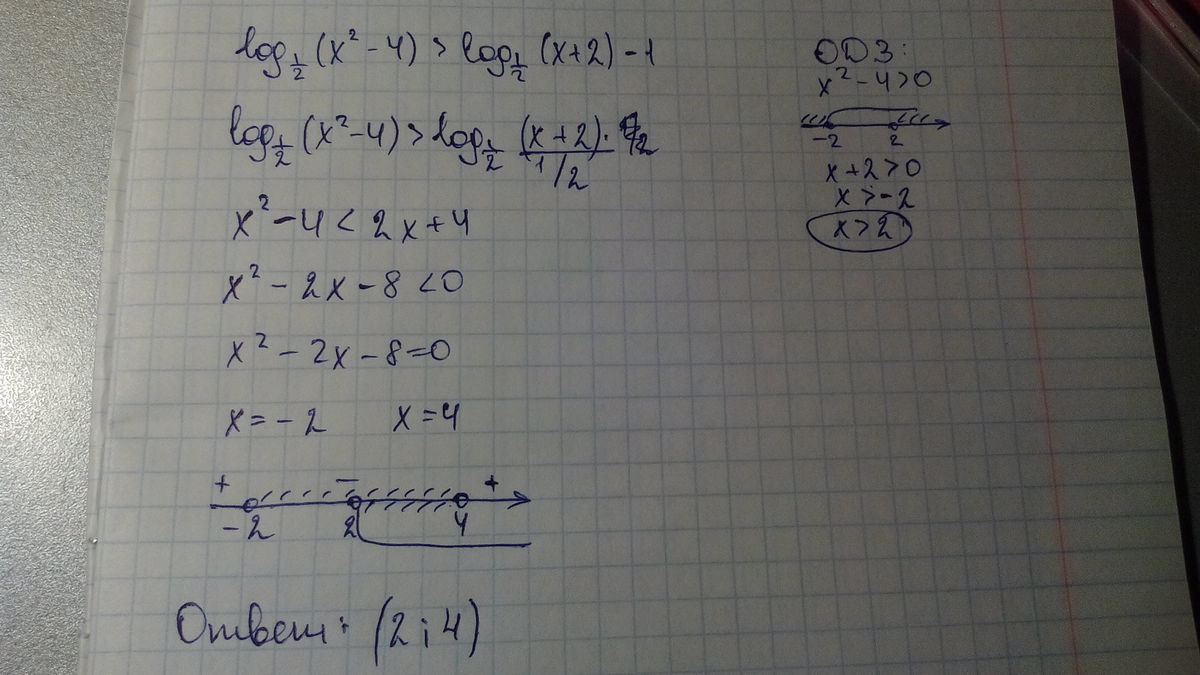 log₁/₂ (x² - 4) > log₁/₂ (x+2) - 1
log₁/₂ (x² - 4) > log₁/₂ (x+2) · / 1/2
x² - 4 < 2x + 4
x² - 2x - 8 < 0
x² - 2x - 8 = 0
x = -2 x = 4
+ - +
-2 2 4
Ответ: (2; 4)
ОДЗ:
x² - 4 > 0
-2 2
x + 2 > 0
x > -2
x > 2